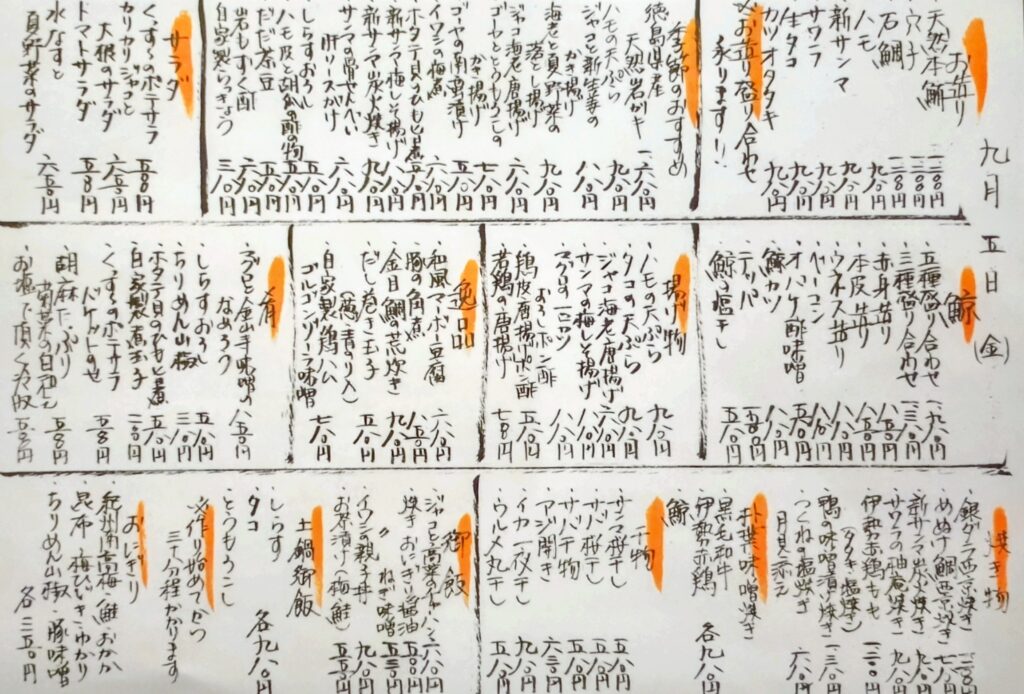 九月五日(金)
お造り
天然本鮪 一二八〇円
穴子 一二八〇円
石鯛 一二八〇円
ハモ 九八〇円
新サンマ 九八〇円
サワラ 九八〇円
生タコ 九八〇円
カツオタタキ 九八〇円
※お造り盛り合わせ
承ります!!
季節のおすすめ
徳島県産
天然岩ガキ 一六八〇円
・ハモの天ぷら 九八〇円
・ジャコと新生姜の
かき揚げ 八八〇円
・海老と夏野菜の
落とし揚げ 九八〇円
・ジャコ海老唐揚げ 六八〇円
・ゴーヤととうもろこしの
かき揚げ 七八〇円
・ゴーヤの南蛮漬け 五八〇円
・イワシの梅煮 六八〇円
・ホタテ貝のひも旨煮 五八〇円
・新サンマ梅しそ揚げ 九八〇円
・新サンマ炭火焼き 九八〇円
・サンマの骨せんべい
肝ソースかけ 六八〇円
・しらすおろし
・ハモ皮と胡瓜の酢の物
・だだ茶豆
・岩もずく酢
・自家製らっきょう 三八〇円
サラダ
・くずしポテサラ 五八〇円
・カリカリジャコと
大根のサラダ 六八〇円
・トマトサラダ 五八〇円
・水なすと
夏野菜のサラダ 六八〇円
鯨
・五種盛り合わせ 一九八〇円
・三種盛り合わせ 一三八〇円
・赤身造り
・本皮造り
・ウネス造り
・ベーコン
・オバケ酢味噌
・鯨カツ
・テッパ
・鯨の塩干し 五八〇円
揚げ物
・ハモの天ぷら 九八〇円
・タコの天ぷら 九八〇円
・ジャコ海老唐揚げ 六八〇円
・サンマの梅しそ揚げ 九八〇円
・スグロの一口カツ 八八〇円
・鶏皮唐揚げポン酢
おろしポン酢 五八〇円
・若鶏の唐揚げ 七八〇円
逸品
・和風マーボー豆腐 六八〇円
・豚の角煮
・金目鯛の荒炊き 九八〇円
・だし巻き玉子
(葱・青のり入)
・自家製鶏ハム
ゴルゴンゾーラ味噌 七八〇円
肴
・ブリと金山寺味噌の
なめろう 八五〇円
・しらすおろし 五八〇円
・ちりめん山椒 三八〇円
・ホタテ貝のひも旨煮 五八〇円
・自家製煮玉子 二八〇円
・くずしポテサラ
バケットのせ 五八〇円
・胡麻たっぷり
菊菜の白和え 五八〇円
お塩で頂く冷奴 五八〇円
焼き物
・銀ダラ西京焼き 一二八〇円
・めぬけ鯛西京焼き
・新サンマ炭火焼き 九八〇円
・サワラの柚庵焼き 九八〇円
・伊勢赤鶏もも
(タタキ・塩焼き) 一二八〇円
・鴨の味噌漬け焼き 一三八〇円
・つくねの塩焼き
月見添え 六八〇円
朴葉味噌焼き
・黒毛和牛
・伊勢赤鶏
・鯨
各九八〇円
干物
・サンマ桜干し 五八〇円
・サバ桜干し 五八〇円
・サバ干物 五八〇円
・アジ開き 六三〇円
・イカ一夜干し 五八〇円
・ウルメ丸干し 五八〇円
御飯
・ジャコと高菜のチャーハン 六八〇円
・焼きおにぎり 醤油 五〇〇円
〃 ねぎ味噌 五三〇円
・イワシの親子丼 九八〇円
・お茶漬け(梅・鮭) 五五〇円
土鍋御飯
しらす
タコ
とうもろこし
各九八〇円
※作り始めてから
三十分程かかります
おにぎり
・紀州南高梅・鮭・おかか
・昆布・梅ひじき・ゆかり
・ちりめん山椒・豚味噌
各二五〇円